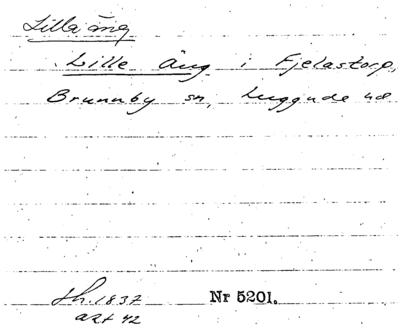 Lilla äng
Lille Äng i Fjelastorp,
Brunnby sn, Luggude hd
Lh. 1837 Nr 5201.
art 42